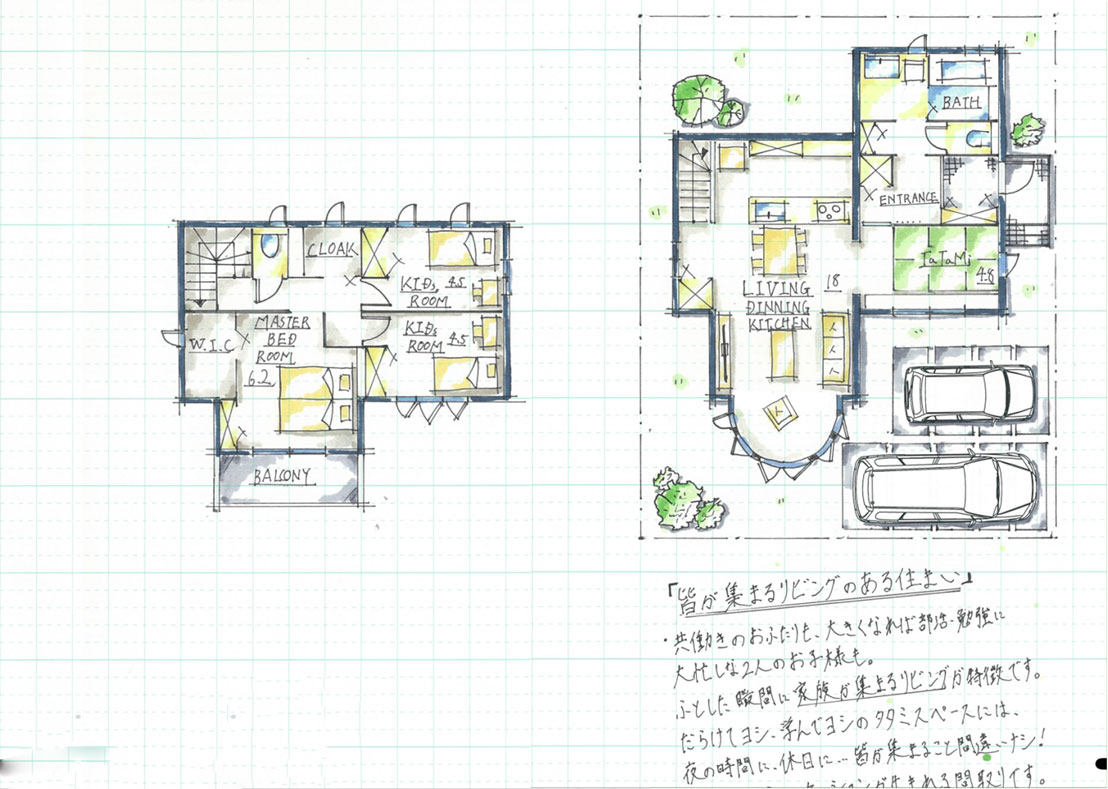 CLOAK
KIDs 4.5
ROOM
KIDs 4.5
ROOM
MASTER
BED
ROOM
6.2
W.I.C
BALCONY
BATH
ENTRANCE
TaTaMi
4.8
LIVING 18
DINNING
KITCHEN
「皆が集まるリビングのある住まい」
・共働きのおふたりも、大きくなれば部活・勉強に
大忙しな2人のお子様も。
ふとした瞬間に家族が集まるリビングが特徴です。
だらけてヨシ、学んでヨシのタタミスペースには、
夜の時間に、休日に…皆が集まること間違いナシ!
生まれる間取りです。